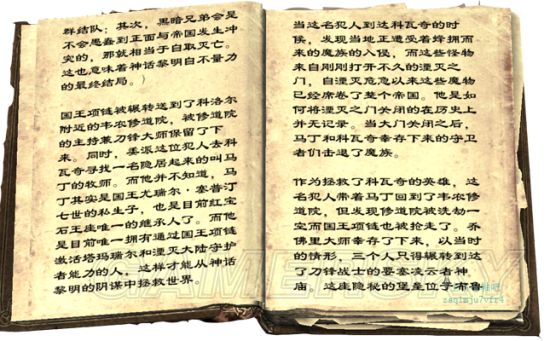 群结队；其次，黑暗兄弟会是
不会愚蠢到正面与帝国发生冲
突的，那就相当于自取灭亡。
这也意味着神话黎明自不量力
的最终结局。）
国王项链被辗转送到了科洛尔
附近的韦农修道院，被修道院
的主持兼刀锋大师保留了下
来。同时，委派这位人去科
瓦奇寻找一名隐居起来的叫马
丁的牧师。而他并不知道，马
丁其实是国王尤瑞尔·塞普汀
七世的私生子，也是目前红宝
石王座唯一的继承人了。而他
是目前唯一拥有通过国王项链
激活塔玛瑞尔和湮灭大陆守护
者能力的人，这样才能从神话
黎明的阴谋中拯救世界。
当这名犯人到达科瓦奇的时
候，发现当地正遭受着蜂拥而
来的魔族的入侵，而这些怪物
来自刚刚打开不久的湮灭之
门，自湮灭危急以来这些魔物
已经席卷了整个帝国。他是如
何将湮灭之门关闭的在历史上
并无记录。当大门关闭之后，
马丁和科瓦奇幸存下来的守卫
者们击退了魔族。
作为拯救了科瓦奇的英雄，这
名犯人带着马丁回到了韦农修
道院，但发现修道院被洗劫一
空而国王项链也被抢走了。乔
佛里大师幸存了下来，以当时
的情形，三个人只得辗转到达
了刀锋战士的要塞凌云者神
庙。这座隐秘的堡垒位于布鲁
GAMERSKY
zaq1mju7vfr4